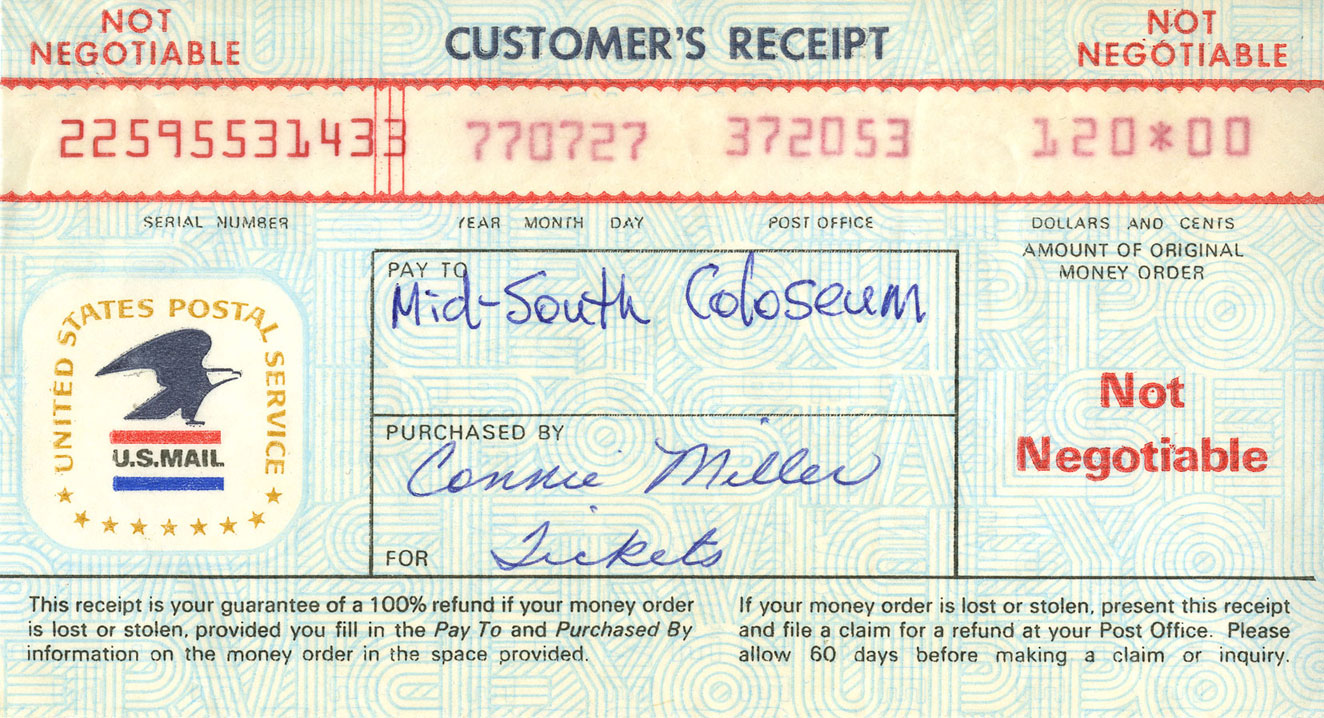 NOT NEGOTIABLE
CUSTOMER'S RECEIPT
NOT NEGOTIABLE
22595531433 770727 372053 120*00
SERIAL NUMBER YEAR MONTH DAY POST OFFICE DOLLARS AND CENTS
AMOUNT OF ORIGINAL
MONEY ORDER
UNITED STATES POSTAL SERVICE
U.S.MAIL
PAY TO
Mid-South Coloseum
PURCHASED BY
Connie Miller
FOR Tickets
Not
Negotiable
This receipt is your guarantee of a 100% refund if your money order
is lost or stolen, provided you fill in the Pay To and Purchased By
information on the money order in the space provided.
If your money order is lost or stolen, present this receipt
and file a claim for a refund at your Post Office. Please
allow 60 days before making a claim or inquiry.